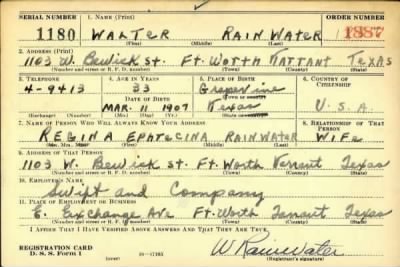 SERIAL NUMBER 1. NAME (Print) ORDER NUMBER
1180 WALTER RAIN WATER 1887
(First) (Middle) (Last)
2. ADDRESS (Print)
1103 W. Bewick St. Ft. Worth TARRANT TEXAS
(Number and street or R. F. D. number) (Town) (County) (State)
3. TELEPHONE 4. AGE IN YEARS 5. PLACE OF BIRTH 6. COUNTRY OF CITIZENSHIP
4-9413 33 Grapevine
DATE OF BIRTH (Town or county)
MAR. 11 1907 Texas U.S.A
(Exchange) (Number) (Mo.) (Day) (Yr.) (State or country)
7. NAME OF PERSON WHO WILL ALWAYS KNOW YOUR ADDRESS 8. RELATIONSHIP OF THAT PERSON
REGINA RAINWATER WIFE
(Mr., Mrs., Miss) (First) (Middle) (Last)
9. ADDRESS OF THAT PERSON
1103 W. Bewick St. Ft Worth Tarrant Texas
(Number and street or R. F. D. number) (Town) (County) (State)
10. EMPLOYER'S NAME
Swift and Company
11. PLACE OF EMPLOYMENT OR BUSINESS
E. Exchange Ave Ft. Worth Tarrant Texas
(Number and street or R. F. D. number) (Town) (County) (State)
I AFFIRM THAT I HAVE VERIFIED ABOVE ANSWERS AND THAT THEY ARE TRUE.
REGISTRATION CARD
D. S. S. Form 1 16-17105 W Rainwater
(Registrant's signature)